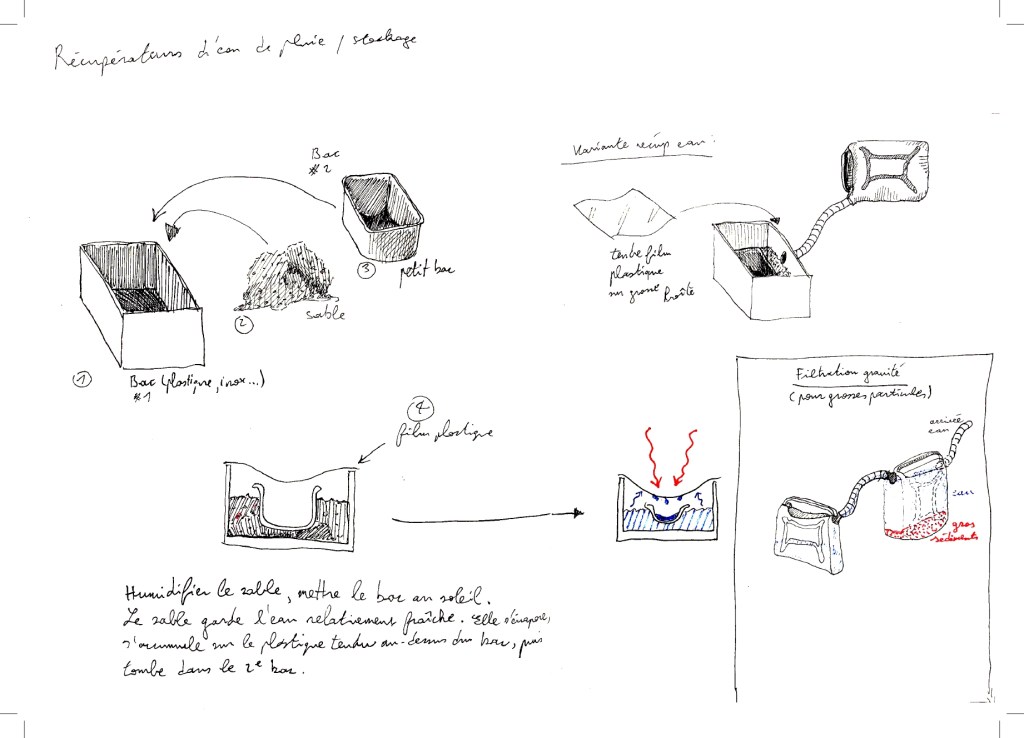 Récupérateurs d'eau de pluie / stockage
Bac
#2
③
petit bac
②
sable
①
Bac (plastique, inox...)
#1
Variante récup eau :
tendre film
plastique
sur grosse boîte
④
film plastique
Filtration gravité
(pour grosses particules)
arrivée
eau
eau
gros
sédiments
Humidifier le sable, mettre le bac au soleil.
Le sable garde l'eau relativement fraîche. Elle s'évapore,
s'accumule sur le plastique tendu au-dessus du bac, puis
tombe dans le 2e bac.